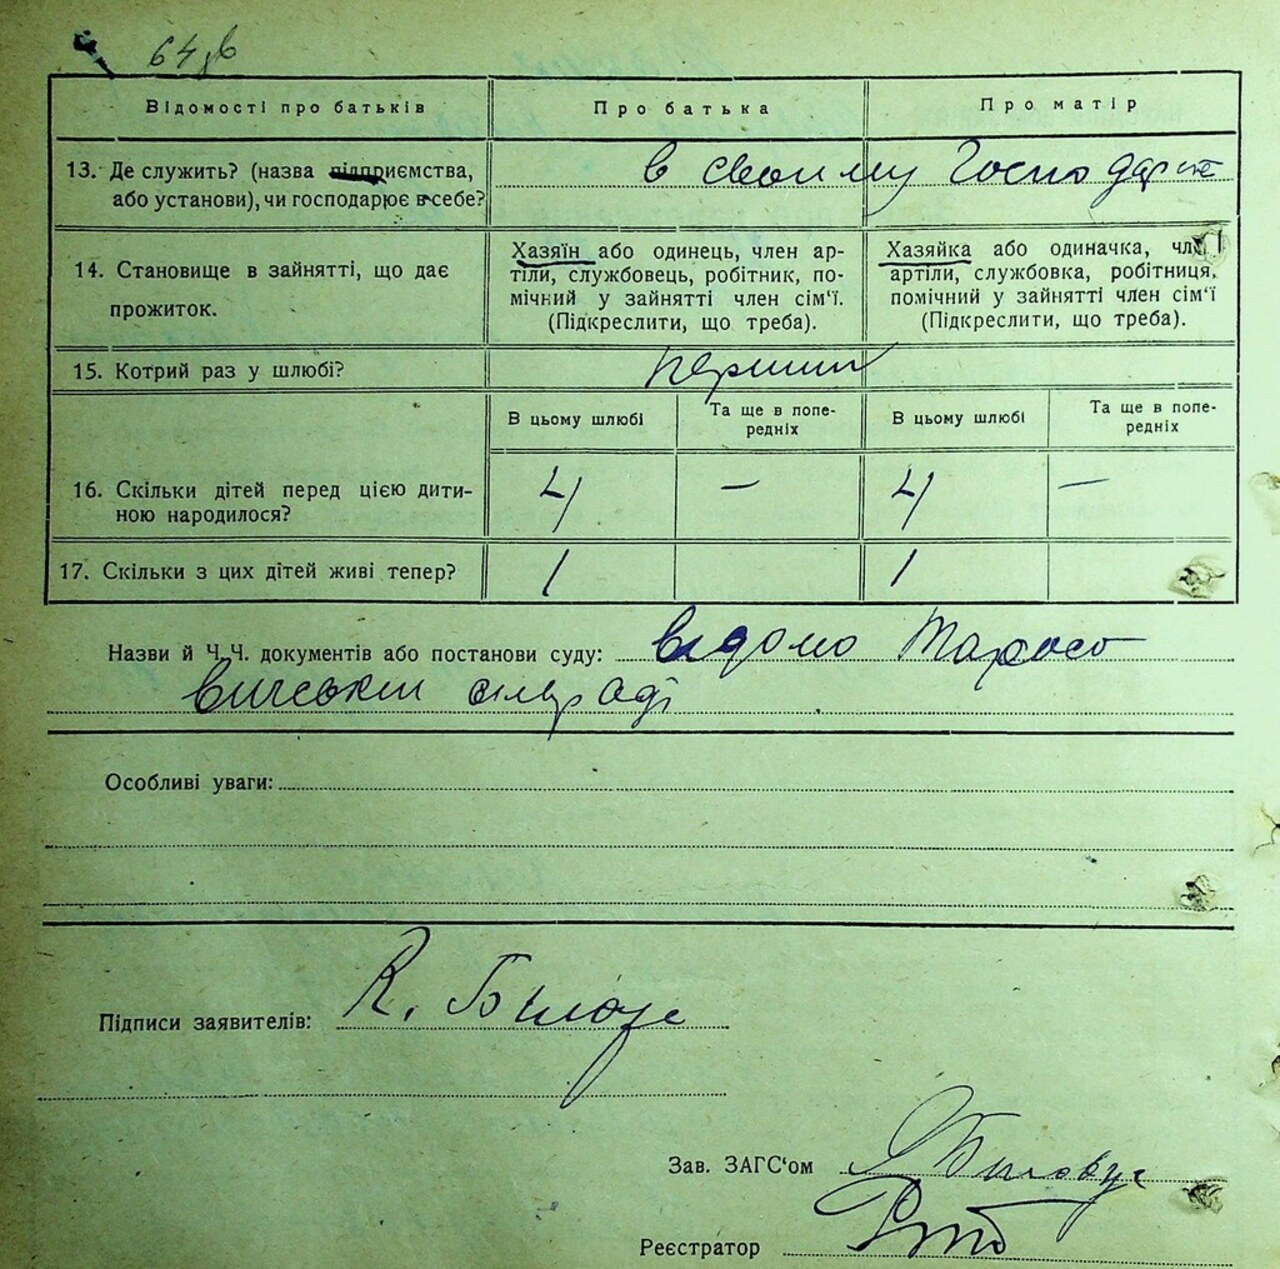 64 зв
Відомості про батьків Про батька Про матір
13. Де служить? (назва підприємства, в своиму Господарстві
або установи), чи господарює в себе?
14. Становище в зайнятті, що дає
прожиток.
Хазяїн або одинець, член ар-
тіли, службовець, робітник, по-
мічний у зайнятті член сім'ї.
(Підкреслити, що треба).
Хазяйка або одиначка, член
артіли, службовка, робітниця,
помічний у зайнятті член сім'ї
(Підкреслити, що треба).
15. Котрий раз у шлюбі? перший
В цьому шлюбі Та ще в попе-
редніх В цьому шлюбі Та ще в попе-
редніх
16. Скільки дітей перед цією дити-
ною народилося? 4 — 4 —
17. Скільки з цих дітей живі тепер? 1 1
Назви й Ч.Ч. документів або постанови суду: відомо Тарасо
вичській сільраді
Особливі уваги:
Підписи заявителів: К.
Зав. ЗАГС'ом Біловус
Реєстратор